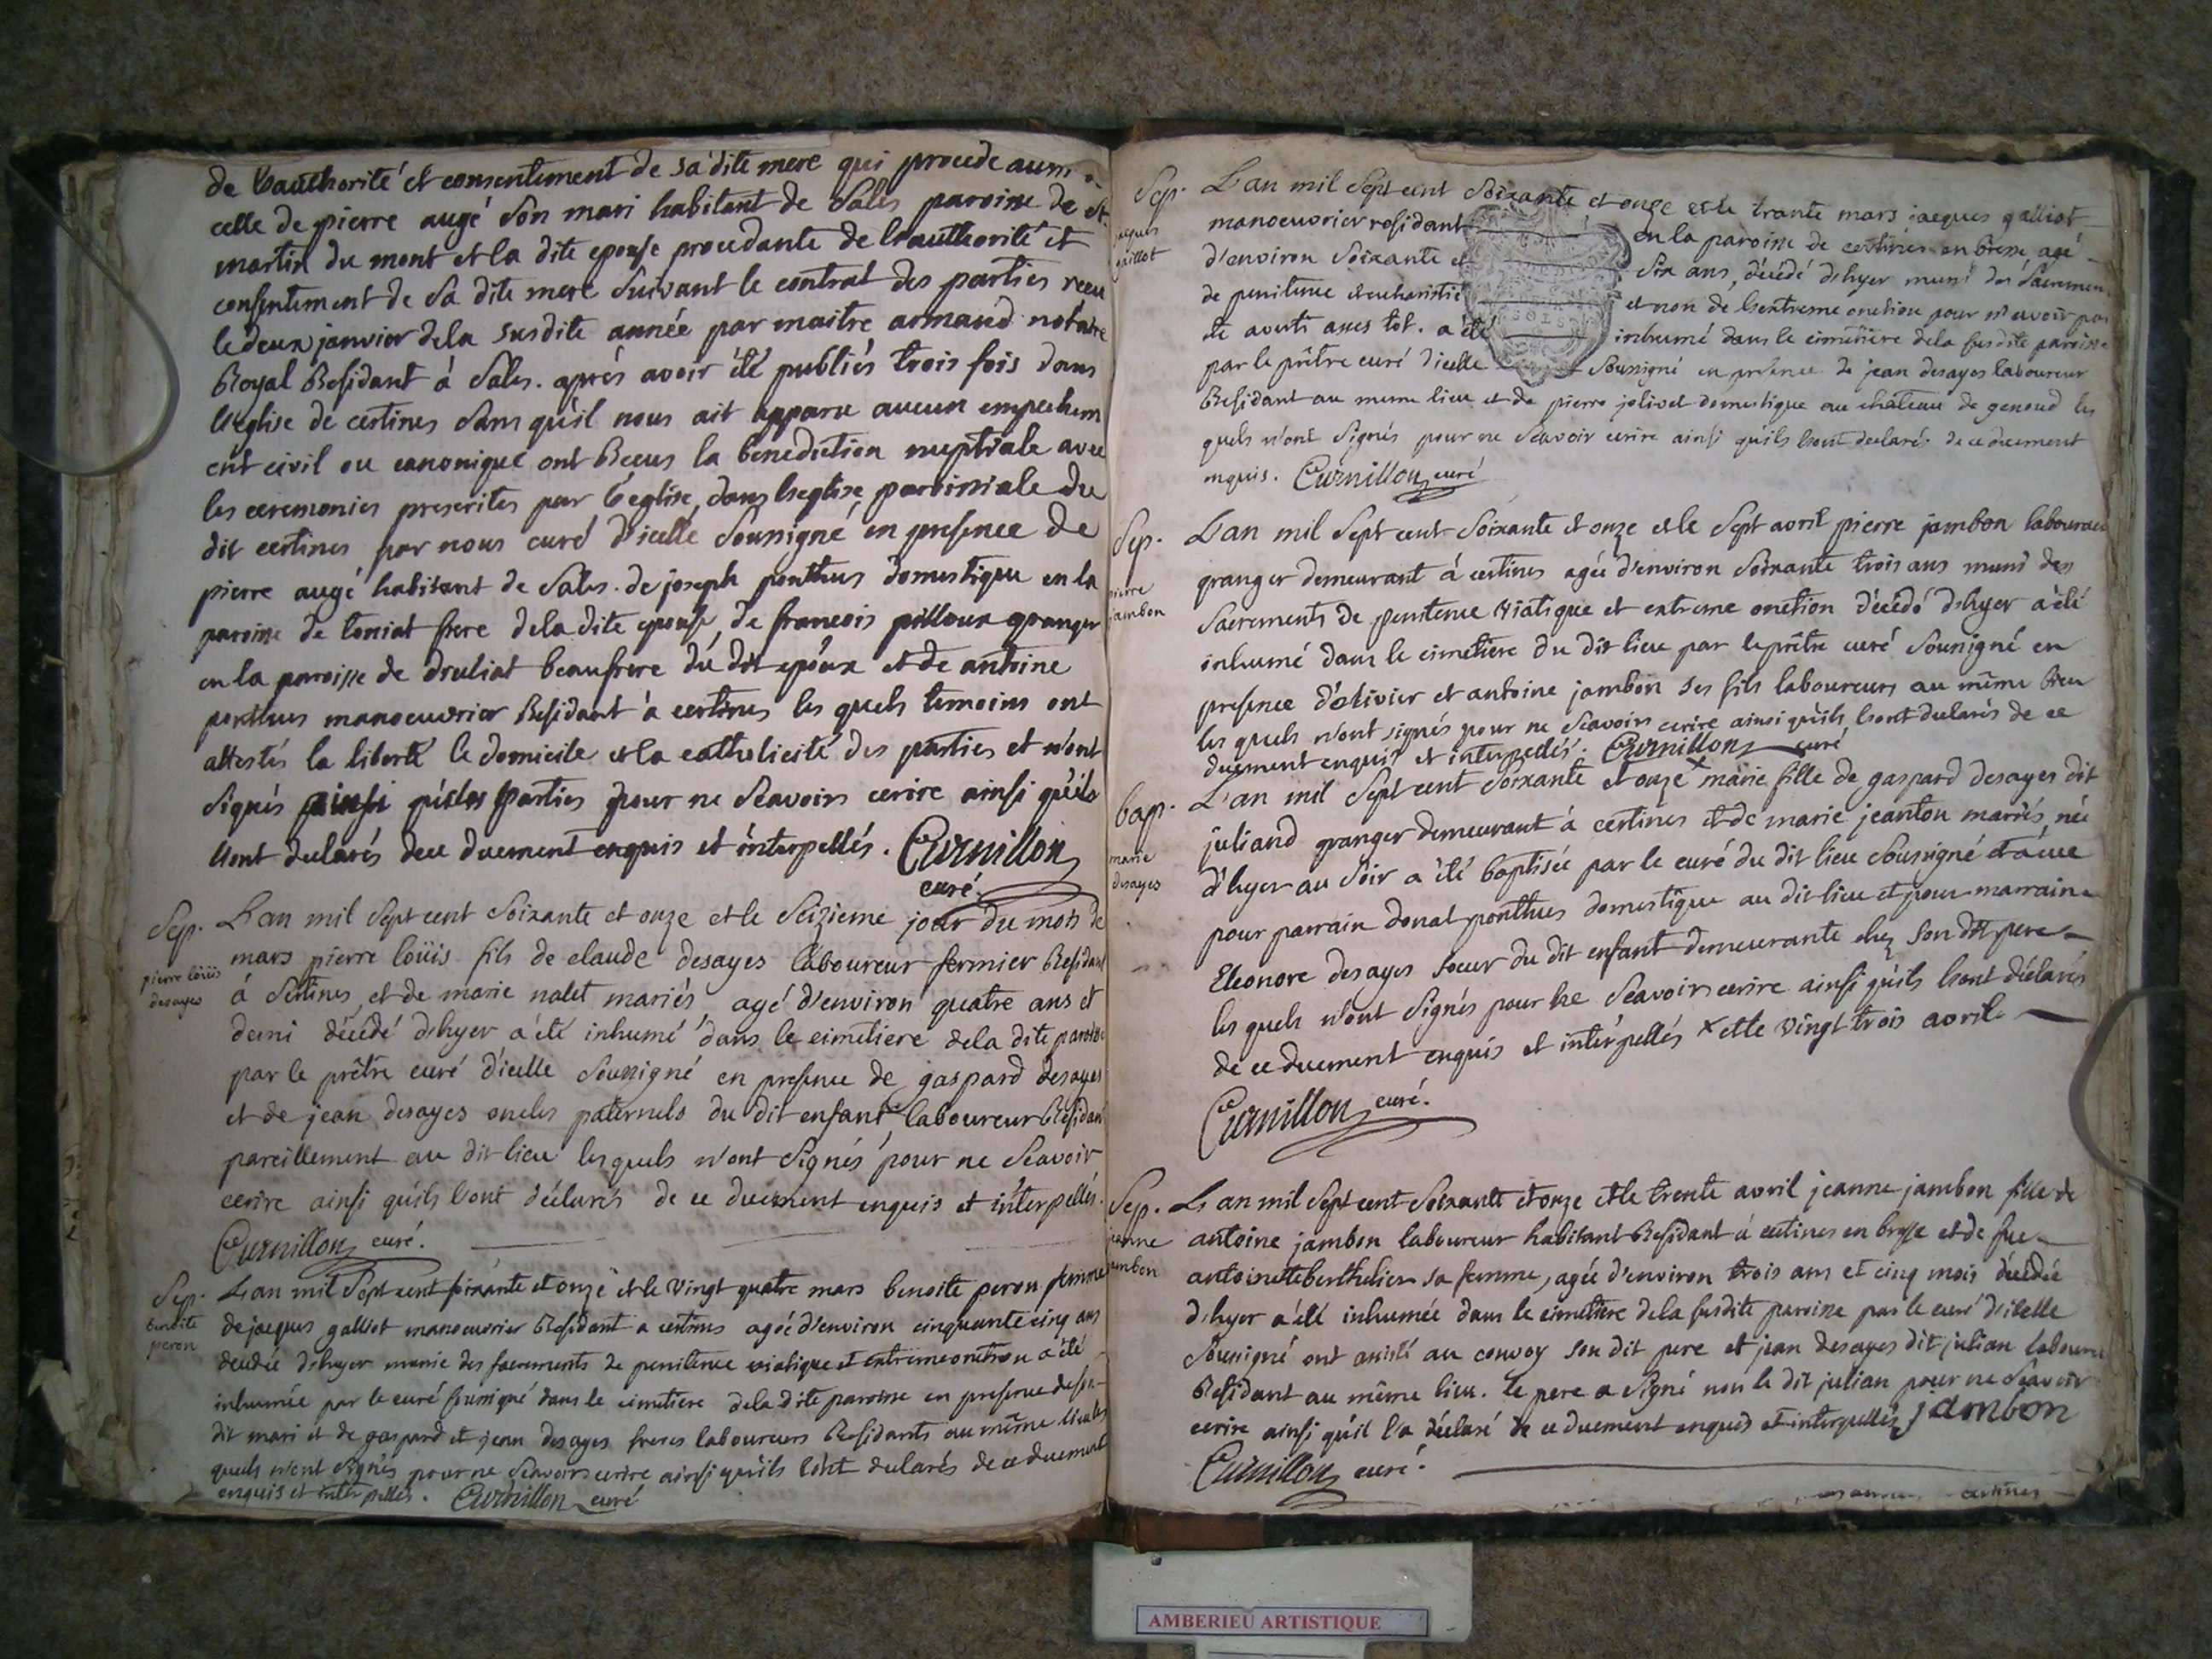 de l'authorité et consentement de sa dite mere qui procede aussi de
celle de pierre augé son mari habitant de Sales paroisse de st
martin du mont et la dite epouse procedante de l'authorité et
consentement de sa dite mere suivant le contrat des parties receu
le deux janvier de la susdite année par maitre armand notaire
Royal Residant à Sales. après avoir été publiés trois fois dans
l'eglise de certines sans qu'il nous ait apparu aucun empechem
ent civil ou canonique ont Receus la benediction nuptiale avec
les ceremonies prescrites par l'eglise, dans l'eglise paroissiale du
dit certines par nous curé d'icelle soussigné en presence de
pierre augé habitant de Sales. de joseph ponthus domestique en la
paroisse de toniat frere de la dite epouse, de francois pilloux granger
en la paroisse de druliat beaufrere du dit epoux et de antoine
ponthus manoeuvrier Residant à certines les quels temoins ont
attestés la liberté le domicile et la catholicité des parties et n'ont
signés ainsi que les parties pour ne sçavoir ecrire ainsi qu'ils
l'ont declarés de ce duement enquis et interpellés. Curnillon
curé.
Sep. L'an mil sept cent soixante et onze et le seizieme jour du mois de
mars pierre loüis fils de claude desayes laboureur fermier Residant
pierre loüis
desayes
à Sertines, et de marie nalet mariés agé d'environ quatre ans et
demi décédé d'hyer a été inhumé dans le cimetiere de la dite paroisse
par le prêtre curé d'icelle soussigné en presence de gaspard desayes
et de jean desayes oncles paternels du dit enfant, laboureur Residant
pareillement au dit lieu les quels n'ont signés pour ne sçavoir
ecrire ainsi qu'ils l'ont déclarés de ce duement enquis et interpellés.
Curnillon curé.
Sep. L'an mil sept cent soixante et onze et le vingt quatre mars benoite peron femme
benoite
peron
de jacques galliot manoeuvrier Residant a certines agée d'environ cinquante cinq ans
décédée d'hyer munie des sacrements de penitence viatique et extreme onction a été
inhumée par le curé soussigné dans le cimetiere de la dite paroisse en presence de son
dit mari et de gaspard et jean desayes freres laboureurs Residants au même lieu les
quels n'ont signés pour ne sçavoir ecrire ainsi qu'ils l'ont declarés de ce duement
enquis et interpellés. Curnillon curé
Sep. L'an mil sept cent soixante et onze et le trante mars jacques galliot
jacques
gaillot
manoeuvrier residant en la paroisse de certines en bresse agé
d'environ soixante et six ans, décédé d'hyer muni des sacremen
de penitence et eucharistie et non de l'extreme onction pour n'avoir pas
été averti asses tot. a été inhumé dans le cimetiere de la susdite paroisse
par le prêtre curé d'icelle soussigné en presence de jean desayes laboureur
Residant au meme lieu et de pierre jolivet domestique au château de genoud les
quels n'ont signés pour ne sçavoir ecrire ainsi qu'ils l'ont declaré de ce duement
enquis. Curnillon curé
Sep. L'an mil sept cent soixante et onze et le sept avril pierre jambon laboureur
pierre
jambon
granger demeurant à certines agée d'environ soixante trois ans muni des
sacrements de penitence viatique et extreme onction décédé d'hyer a été
inhumé dans le cimetiere du dit lieu par le prêtre curé soussigné en
presence d'olivier et antoine jambon ses fils laboureurs au même lieu
les quels n'ont signés pour ne sçavoir ecrire ainsi qu'ils l'ont declarés de ce
duement enquis et interpellés. Curnillon curé
bap. L'an mil sept cent soixante et onze x marie fille de gaspard desayes dit
marie
desayes
juliand granger demeurant à certines et de marie jeanton mariés, née
d'hyer au soir a été baptisée par le curé du dit lieu soussigné et a eue
pour parrain donat ponthus domestique au dit lieu et pour marraine
Eleonore desayes soeur du dit enfant demeurante chez son dit pere
les quels n'ont signés pour ne sçavoir ecrire ainsi qu'ils l'ont déclarés
de ce duement enquis et interpellés x et le vingt trois avril
Curnillon curé.
Sep. L'an mil sept cent soixante et onze et le trente avril jeanne jambon fille de
jeanne
jambon
antoine jambon laboureur habitant Residant à certines en bresse et de fue
antoinette berthelier sa femme, agée d'environ trois ans et cinq mois décédée
d'hyer a été inhumée dans le cimetiere de la susdite paroisse par le curé d'icelle
soussigné ont assisté au convoy son dit pere et jean desayes dit julian laboureur
Residant au même lieu. le pere a signé non le dit julian pour ne sçavoir
ecrire ainsi qu'il l'a déclaré de ce duement enquis et interpellés jambon
Curnillon curé.
certines
AMBERIEU ARTISTIQUE